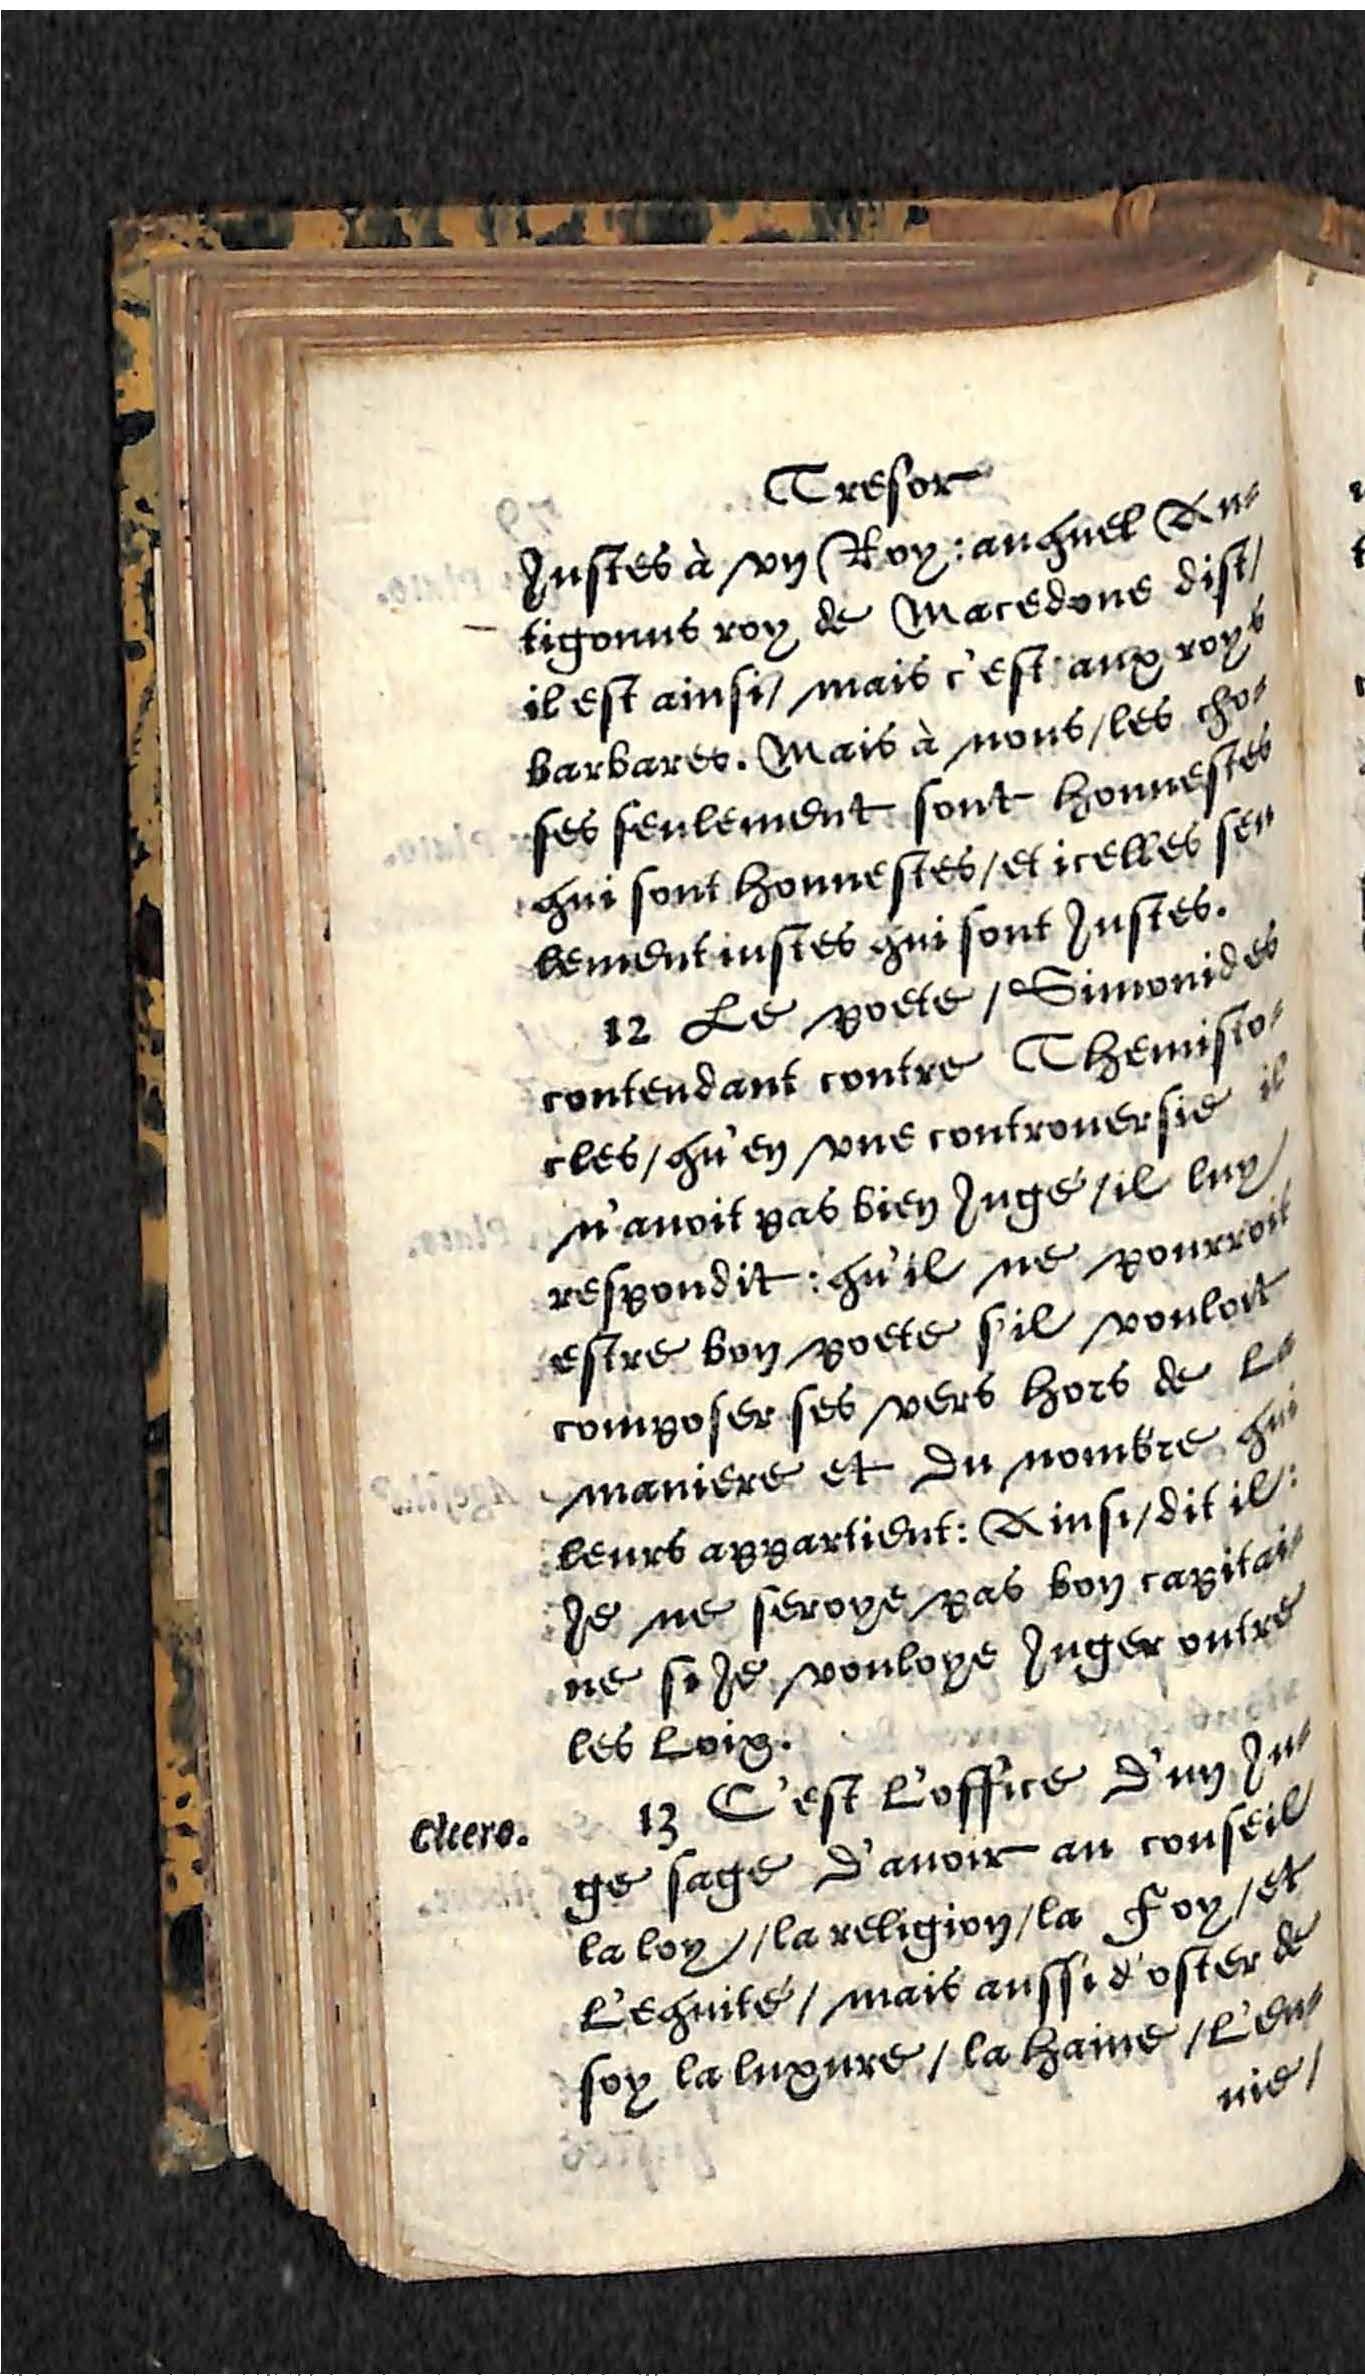 Tresor
Justes à vn Roy: auquel An-
tigonus roy de Macedone dist/
il est ainsi/ mais c'est aux roys
barbares. Mais à nous/les cho-
ses seulement sont honnestes
qui sont honnestes/et icelles seu
lement iustes qui sont Justes.
12 Le poete/Simonides
contendant contre Themisto-
cles/qu'en vne controuersie il
n'auoit pas bien Jugé/il luy
respondit: qu'il ne pourroit
estre bon poete s'il vouloit
composer ses vers hors de la
maniere et du nombre qui
leurs appartient: Ainsi/dit il:
Je ne seroye pas bon capitai-
ne si Je vouloye Juger outre
les Loix.
Cicero.
13 C'est L'office d'un Ju-
ge sage d'auoir au conseil
la loy//la religion/la Foy/et
L'equité/ mais aussi d'oster de
soy la luxure/la haine/L'en-
uie/